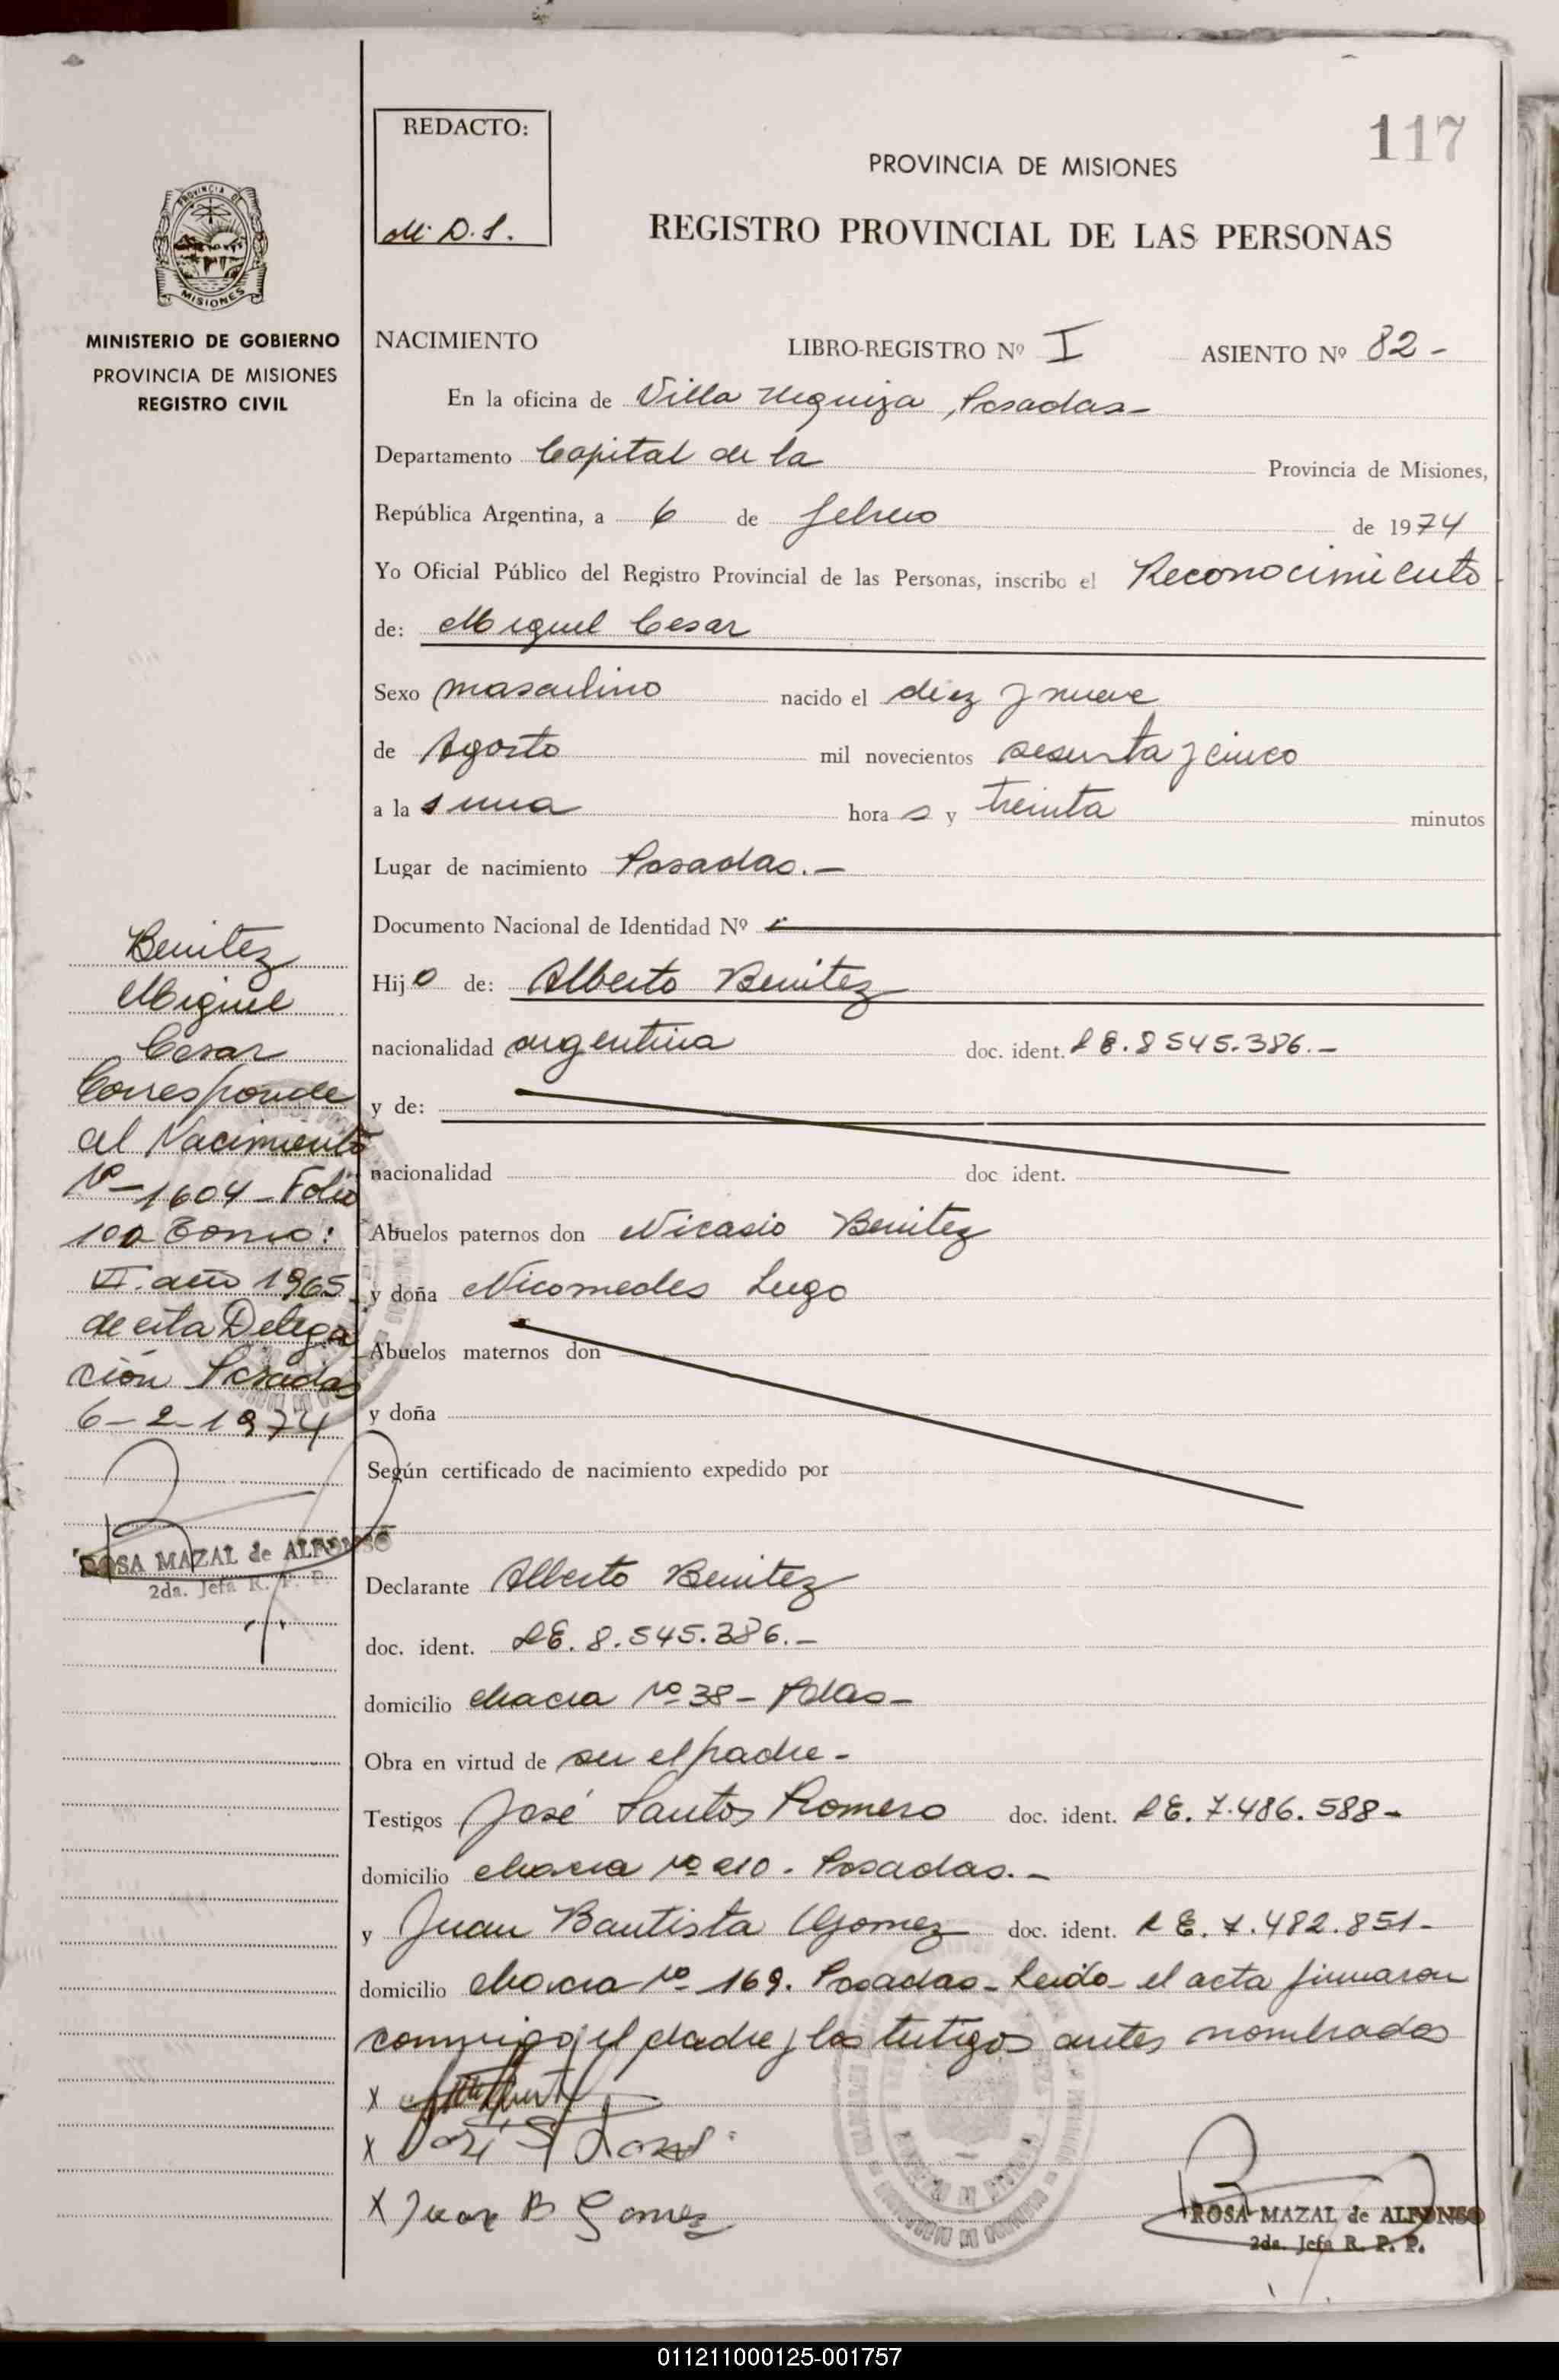 117
REDACTO:
M. D. S.
PROVINCIA DE MISIONES
REGISTRO PROVINCIAL DE LAS PERSONAS
PROVINCIA DE
MISIONES
MINISTERIO DE GOBIERNO
PROVINCIA DE MISIONES
REGISTRO CIVIL
NACIMIENTO LIBRO-REGISTRO Nº I ASIENTO Nº 82-
En la oficina de Villa Urquiza, Posadas-
Departamento Capital de la Provincia de Misiones,
República Argentina, a 6 de febrero de 1974
Yo Oficial Público del Registro Provincial de las Personas, inscribo el Reconocimiento
de: Miguel Cesar
Sexo masculino nacido el diez y nueve
de Agosto mil novecientos sesenta y cinco
a la s una hora s y treinta minutos
Lugar de nacimiento Posadas.-
Documento Nacional de Identidad Nº
Hijo de: Alberto Benitez
nacionalidad argentina doc. ident. LE. 8545.386.-
y de:
nacionalidad doc. ident.
Abuelos paternos don Nicasio Benitez
y doña Nicomedes Lugo
Abuelos maternos don
y doña
Según certificado de nacimiento expedido por
Declarante Alberto Benitez
doc. ident. LE. 8.545.386.-
domicilio chacra Nº 38- Pdas-
Obra en virtud de ser el padre-
Testigos José Santos Romero doc. ident. LE. 7.486.588-
domicilio chacra Nº 210. Posadas.-
y Juan Bautista Gomez doc. ident. LE. 7.482.851-
domicilio chacra Nº 169. Posadas- Leida el acta firmaron
conmigo, el padre y los testigos antes nombrados
X
X José S
X Juan B Gomez
ROSA MAZAL de ALFONSO
2da. Jefa R. P. P.
Benitez
Miguel
Cesar
Corresponde
al Nacimiento
Nº-1604-Folio
100 Tomo:
VI. año 1965
de esta Delega
ción Posadas
6-2-1974
ROSA MAZAL de ALFONSO
2da. Jefa R. P. P.
011211000125-001757